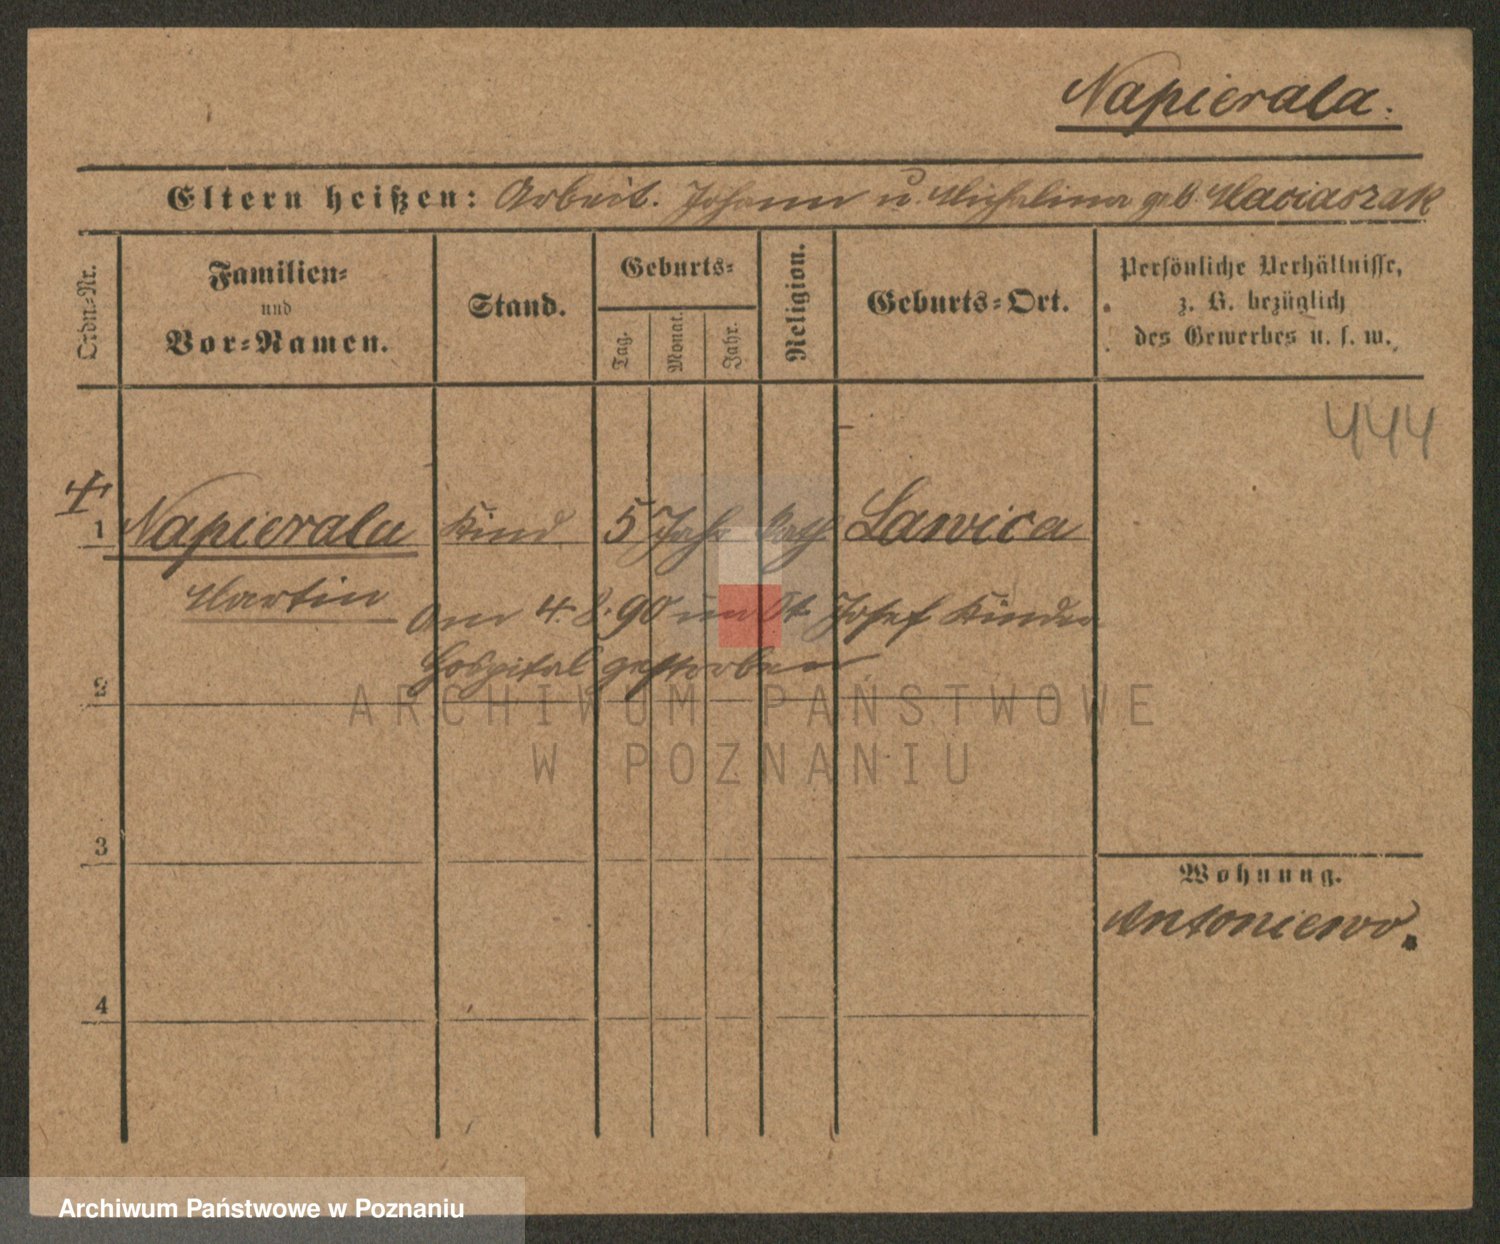 Napierala.
Eltern heißen: Arbeit. Johann u. Michalina geb. Maciaszak
Ordn.-Nr.
Familien-
und
Vor-Namen.
Stand.
Geburts-
Tag.
Monat.
Jahr.
Religion.
Geburts-Ort.
Persönliche Verhältnisse,
z. B. bezüglich
des Gewerbes u. s. w.
444
1 Napierala Kind 5 Jahr kath Lawica
Martin
Am 4. 8. 90 im St. Josef Kinder
hospital gestorben
2
ARCHIWUM PAŃSTWOWE
W POZNANIU
3
Wohnung.
Antoniewo.
4
Archiwum Państwowe w Poznaniu